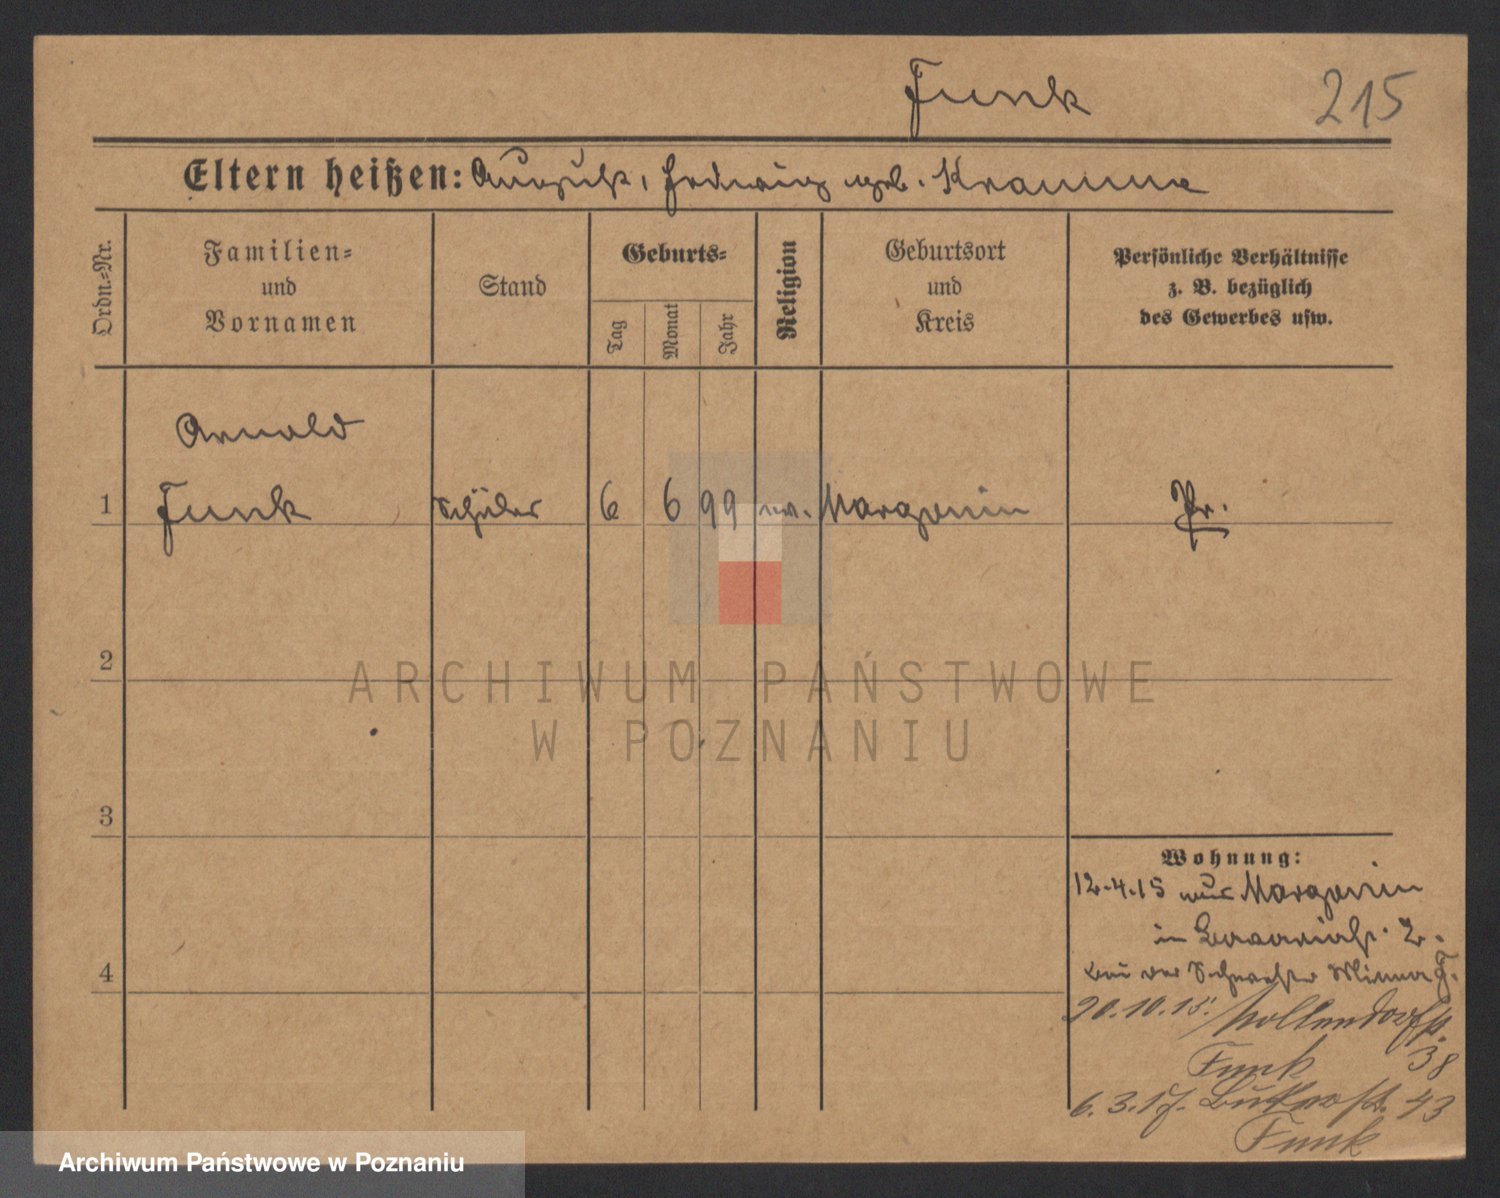 Funk
215
Eltern heißen: August, Hedwig geb. Kramme
Ordn.-Nr.
Familien-
und
Vornamen
Stand
Geburts-
Tag
Monat
Jahr
Religion
Geburtsort
und
Kreis
Persönliche Verhältnisse
z. B. bezüglich
des Gewerbes usw.
Arnold
1 Funk Schüler 6 6 99 ev. Margonin Pr.
2
3
4
Wohnung:
12.4.15 aus Margonin
in 2.
bei der Schwester Minna F.
20.10.15. Nollendorfstr.
38
Funk
6.3.17. 43
Funk
ARCHIWUM PAŃSTWOWE
W POZNANIU
Archiwum Państwowe w Poznaniu